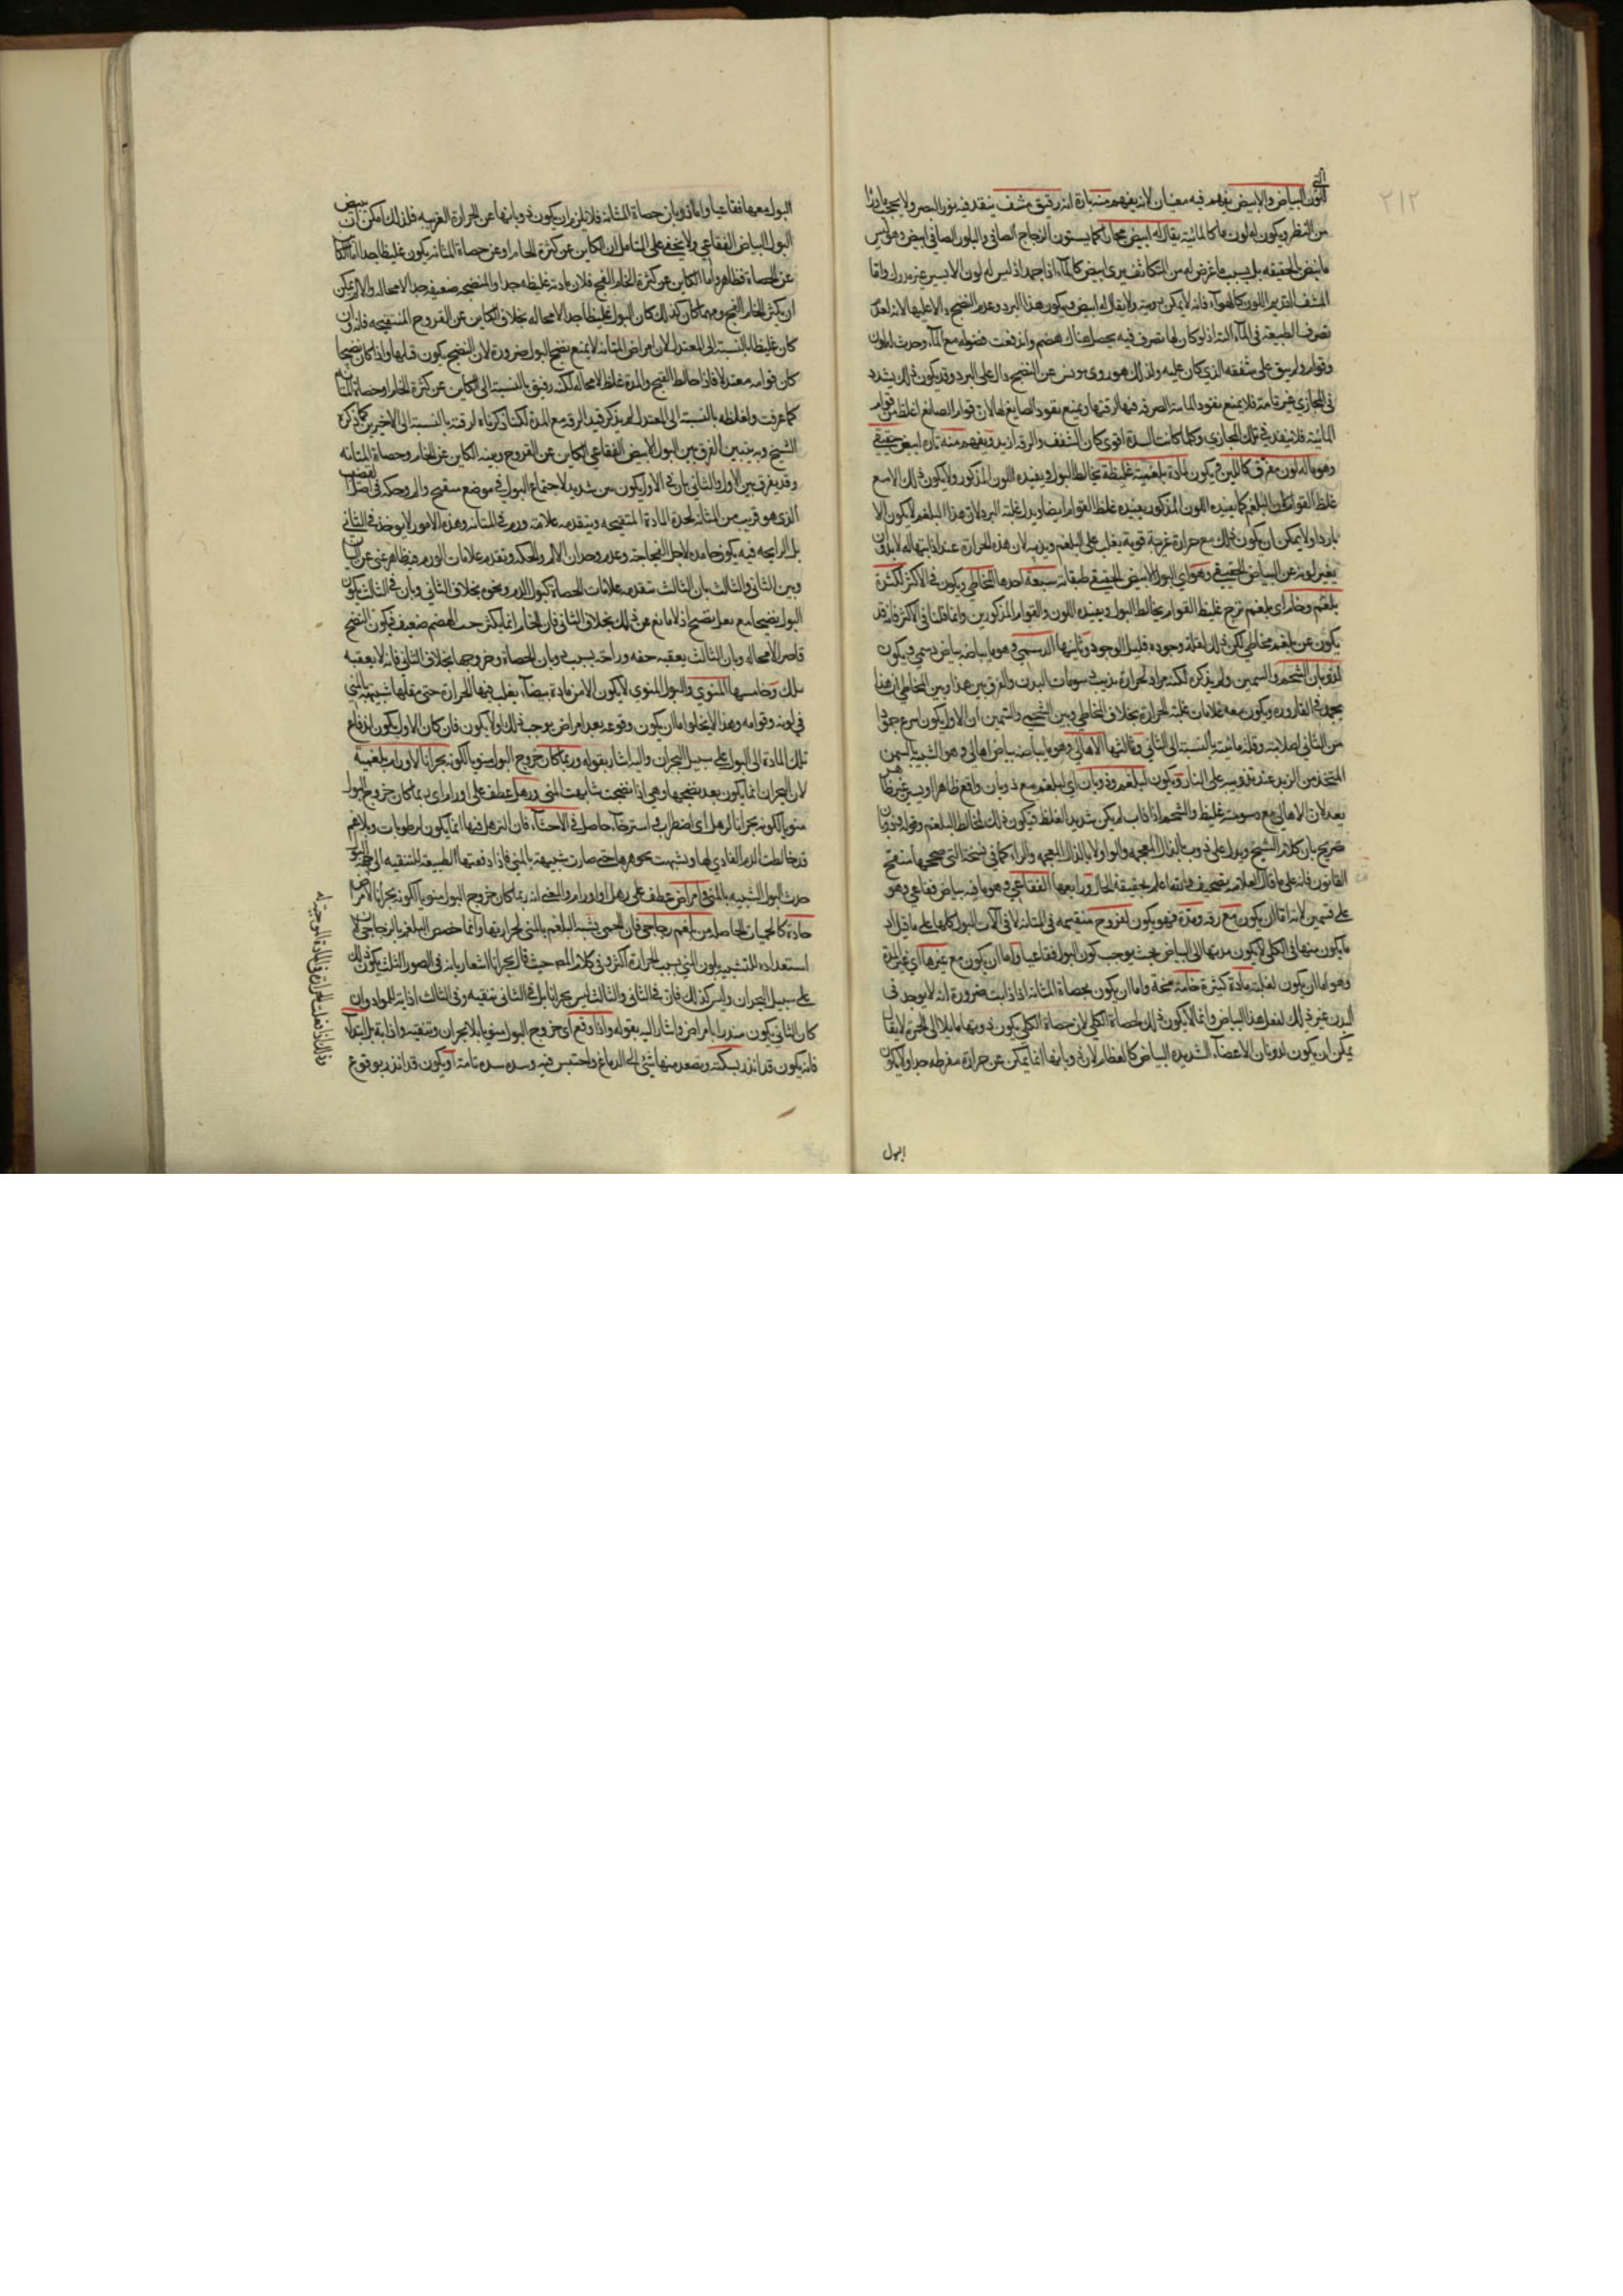 ٢١٢
اللون البياض والابيض يفهم فيه معنيان لانه يفهم منه تارة انه رقيق مشف ينفد فيه نور البصر ولا يحجب
من النظر ويكون له لون ما كالمائية يقال له ابيض مجازا كما يسمون الزجاج الصافي والبلور الصافي ابيض وهو ليس
بابيض بالحقيقه بل بسبب ما عرض له من التكاثف يرى ابيض كالماء اذا جمد اذ ليس له لون الا يسير غير مدرك واما
المشف العديم اللون كالهواء فانه لا يمكن رويته ولا يقال له ابيض ويكون هذا البرد وعدم النضج
تصرف الطبيعة في الماء البتة اذ لو كان لها تصرف فيه يحصل هناك هضم واندفعت فضوله مع الماء وحدث له لون
وقوام ولم يبق على شففه الذي كان عليه ولذلك هو ردى مونس عن النضج دال على البرد وقد يكون ذلك لسدد
في المجاري غير تامة فلا يمنع نفوذ المائية الصرفه فيها لرقتها ويمنع نفوذ الصابغ لها لان قوام الصابغ اغلظ من قوام
المائية فلا ينفد في تلك المجاري وكلما كانت السدة اقوى كان الشفف والرقه ازيد ويفهم منه تارة ابيض حقيقي
وهو ما له لون مفرق كاللبن ويكون لمادة بلغمية غليظة تخالط البول ويفيده اللون المذكور ولا يكون ذلك الا مع
غلظ القوام لان البلغم كما يفيده اللون المذكور يفيده غلظ القوام ايضا ويدل غلبة البرد لان هذا البلغم لا يكون الا
باردا ولا يمكن ان يكون ذلك مع حرارة غريبة قوية يغلب على البلغم ويذيبه لان هذه الحرارة عند اذابتها له لا بد وان
يغير لونه عن البياض الحقيقي وهو اي البول الابيض الحقيقي طبقاته سبعة احدها المخاطي ويكون في الاكثر لكثرة
بلغم وخام اى بلغم لزج غليظ القوام يخالط البول ويفيده اللون والقوام المذكورين وانما قلنا في الاكثر فانه قد
يكون عن بلغم مخاطي لكن ذلك لقلة وجوده قليل الوجود وثانيها الدسمي وهو ما بياضه بياض دسمي ويكون
لذوبان الشحم والسمين ولم يذكره لكنه مراد لحرارة يذيب دسومات البدن والفرق بين هذا وبين المخاطي ان هذا
يجمد في القارورة ويكون معه علامات غلبة الحرارة بخلاف المخاطي وبين الشحمي والسمين ان الاول يكون اسرع جمودا
من الثاني لصلابته وقلة مائيته بالنسبة الى الثاني وثالثها الاهالي وهو ما بياضه بياض اهالي وهو الشبيه بالسمن
المتخذ من الزبد عند تذويبه على النار ويكون لبلغم وذوبان اي لبلغم مع ذوبان واقع ظاهرا
بعد لان الاهالي مع دسومته غليظ والشحم اذا ذاب لم يكن شديد الغلظ فيكون ذلك لمخالط البلغم وقوله وذوبان
صريح بان كلام الشيخ ويدل على ذوب بالذال المعجمه والواو لا بالذال المعجمه والراء كما في نسخة التي صححها
القانون فانه على ما قال العلامة تصحيف والله اعلم بحقيقة الحال ورابعها الفقاعي وهو ما فيه بياض فقاعي وهو
على قسمين لانه اما ان يكون مع رقه ومدة فهو يكون لقروح متقيحه في المثانة لا في آلات البول كلها على ما قيل اذ
ما يكون منها في الكلى لا يكون مدتها الى البياض بحيث يوجب كون البول فقاعيا واما ان يكون مع غيرها اي غير المدة
وهو اما ان يكون لغلبة مادة كثيرة خامة فجة واما ان يكون بحصاة المثانه اذا ذابت ضرورة انه لا يوجد في
البدن غير ذلك لفعل هذا البياض وانما لا يكون ذلك لحصاة الكلى لان حصاة الكلى يكون ذوبها مايلا الى الحمرة لا يقال
يمكن ان يكون لذوبان الاعضاء الشديده البياض كالعظام لان ذوبانها انما يمكن عن حرارة مفرطه جدا ولا يكون
البول
البول معها فقاعيا واما ذوبان حصاة المثانه فلا يلزم ان يكون ذوبانها عن الحرارة الغريبه فلذلك امكن ان يبيض
البول البياض الفقاعي ولا يخفى على المتامل ان الكاين عن كثرة الخام او عن حصاة المثانه يكون غليظا جدا اما الكاين
عن الحصاة فظاهر واما الكاين عن كثرة الخام الفج فلان مادته غليظه جدا والمنضجه ضعيفه جدا لا محاله والا لم يمكن
ان يكثر الخام الفج ومهما كان كذلك كان البول غليظا جدا لا محاله بخلاف الكاين عن القروح المتقيحه فانه وان
كان غليظا بالنسبة الى المعتدل لان امراض المثانه لا يمنع نضج البول ضرورة لان النضج يكون قبلها واذا كان نضيجا
كان قوامه معتدلا فاذا خالط القيح والمدة غلظ لا محاله لكنه رقيق بالنسبة الى الكاين عن كثرة الخام او حصاة المثانه
كما عرفت ولغلظه بالنسبة الى المعتدل لم يذكر قيد الرقه مع المدة لكنا ذكرناه لرقته بالنسبة الى الاخيرين كما ذكره
الشيخ وبه يتبين الفرق بين البول الابيض الفقاعي الكاين عن القروح وبينه الكاين عن الخام وحصاة المثانه
وقد يفرق بين الاول والثاني بان في الاول يكون نتن شديد لاجتماع البول في موضع متقيح والم وحكة في اصل القضيب
الذي هو قريب من المثانه لحدة المادة المتقيحه ويتقدمه علامة ورم في المثانه وهذه الامور لا يوجد في الثاني
بل الرايحه فيه يكون حامده لاجل الفجاجة وعدم وجدان الالم والحكه وتقدم علامات الورم فيظاهر غنى عن البيان
وبين الثاني والثالث بان الثالث يتقدمه علامات الحصاة كبول الدم ونحوه بخلاف الثاني وبان في الثالث يكون
البول نضيجا مع نضيج اذ لا مانع من ذلك بخلاف الثاني فان الخام انما يكثر حيث الهضم ضعيف فيكون النضج
قاصرا لا محاله وبان الثالث يعقبه خفه وراحة بسبب ذوبان الحصاة وخروجها بخلاف الثاني فانه لا يعقبه
ذلك وخامسها المنوي والبول المنوي لا يكون الا من مادة بيضاء يغلب فيها الحرارة حتى شبيهة بالمني
في لونه وقوامه وهذا لا يخلوا اما ان يكون وقوعه بعد امراض يوجب ذلك او لا يكون فان كان الاول يكون لدفاع
تلك المادة الى البول على سبيل البحران واليه اشار بقوله وربما كان خروج البول منويا لكونه بحرانا لاورام بلغمية
لان البحران انما يكون بعد نضجها وهي اذا نضجت شابهت المني ورهل عطف على اورام اى ربما كان خروج البول
منويا لكونه بحرانا لرهل اى اضطراب في استرخاء حاصل في الاحشاء فان الترهل فيها انما يكون لرطوبات وبلاغم
قد خالطت الدم الغاذي لها وتشبهت بجوهرها حتى صارت شبيهة بالمني فاذا دفعتها الطبيعة للتنقيه الى جهة البول
حدث البول الشبيه بالمني وامراض عطف على رهل او اورام والمعنى انه ربما كان خروج البول منويا لكونه بحرانا لامراض
حادة كالحميات الحاصله من بلغم زجاجي فان الحمى تشبه البلغم بالمني لحرارتها وانما خصص البلغم بالزجاجي لان
استعداده للتشبه بلون المني بسبب الحرارة اكثر وفي كلام المص حيث قال بحرانا اشعار بانه في الصور الثلث يكون ذلك
على سبيل البحران وليس كذلك فان في الثاني والثالث ليس بحرانا بل في الثاني تنقيه وفي الثالث اذابة للمواد وان
كان الثاني يكون منذرا بامراض واشار اليه بقوله واذا وقع اى خروج البول منويا بلا بحران وتنقيه واذابة بل ابتداء
فانه يكون قد انذر بسكتة ويصعد منها شئ الى الدماغ واحتبس فيه وسده سدة تامة او يكون قد انذر بوقوع